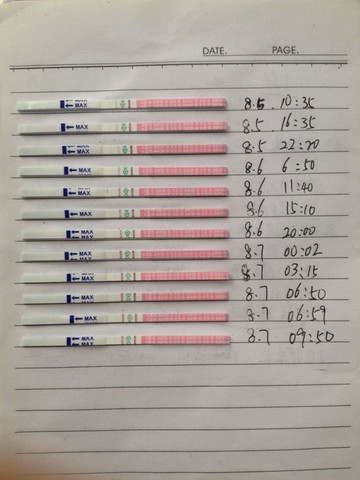 DATE. PAGE.
MAX 8.5 10:35
MAX 8.5 16:35
MAX 8.5 22:20
MAX 8.6 6:50
MAX 8.6 11:40
MAX 8.6 15:10
MAX 8.6 20:00
MAX 8.7 00:02
MAX 8.7 03:15
MAX 8.7 06:50
MAX 8.7 06:59
MAX 8.7 09:50